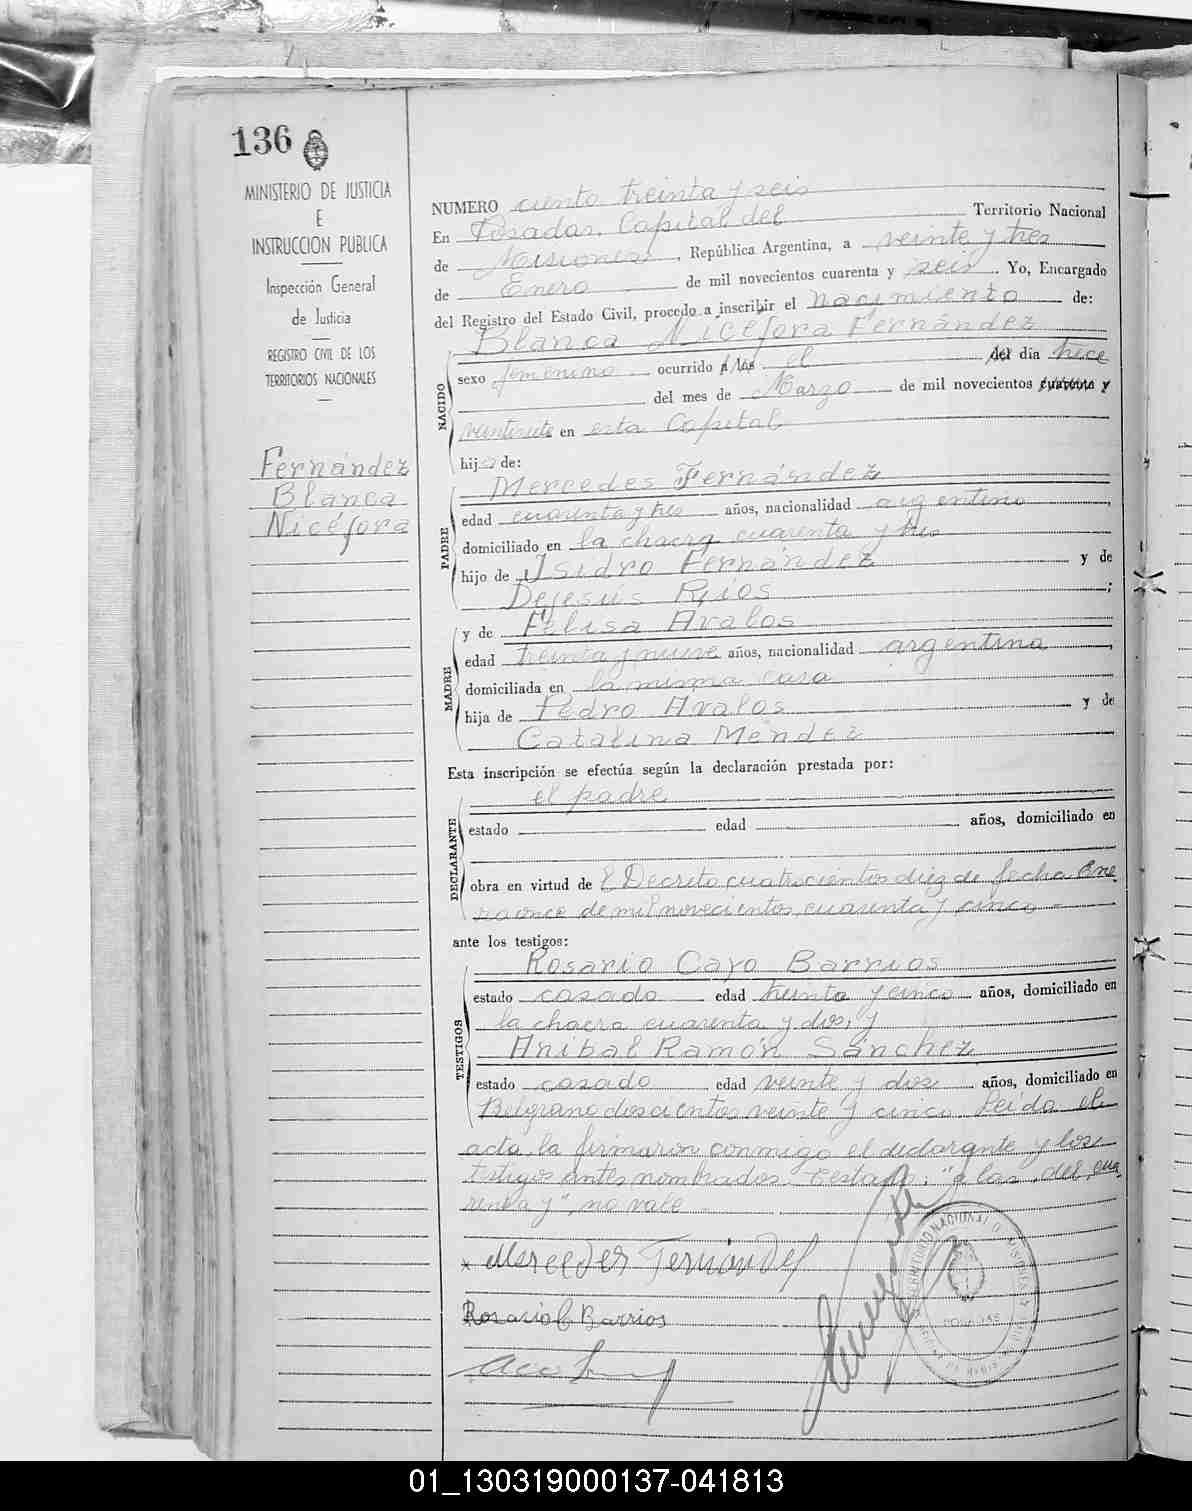 136
MINISTERIO DE JUSTICIA
E
INSTRUCCION PUBLICA
Inspección General
de Justicia
REGISTRO CIVIL DE LOS
TERRITORIOS NACIONALES
Fernández
Blanca
Nicéfora
NUMERO ciento treinta y seis
En Posadas, Capital del Territorio Nacional
de Misiones, República Argentina, a veinte y tres
de Enero de mil novecientos cuarenta y seis. Yo, Encargado
del Registro del Estado Civil, procedo a inscribir el nacimiento de:
Blanca Nicéfora Fernández
NACIDO
sexo femenino ocurrido a las el del día trece
del mes de Marzo de mil novecientos cuarenta y
veintisiete en esta Capital
hija de:
Mercedes Fernández
PADRE
edad cuarenta y tres años, nacionalidad argentino,
domiciliado en la chacra cuarenta y tres
hijo de Isidro Fernández y de
Dejesús Ríos;
y de Felisa Avalos
MADRE
edad treinta y nueve años, nacionalidad argentina,
domiciliada en la misma casa
hija de Pedro Avalos y de
Catalina Méndez
Esta inscripción se efectúa según la declaración prestada por:
el padre
DECLARANTE
estado edad años, domiciliado en
obra en virtud de l Decreto cuatrocientos diez de fecha Ene
ro once de mil novecientos cuarenta y cinco
ante los testigos:
Rosario Cayo Barrios
TESTIGOS
estado casado edad treinta y cinco años, domiciliado en
la chacra cuarenta y dos, y
Anibal Ramón Sánchez
estado casado edad veinte y dos años, domiciliado en
Belgrano doscientos veinte y cinco. Leida el
acta, la firmaron conmigo el declarante y los
testigos antes nombrados. Testado: "a las, del, cua
renta y", no vale
x Mercedes Fernández
Rosario C Barrios
TERRITORIO NACIONAL D. MISIONES
POSADAS
01_130319000137-041813